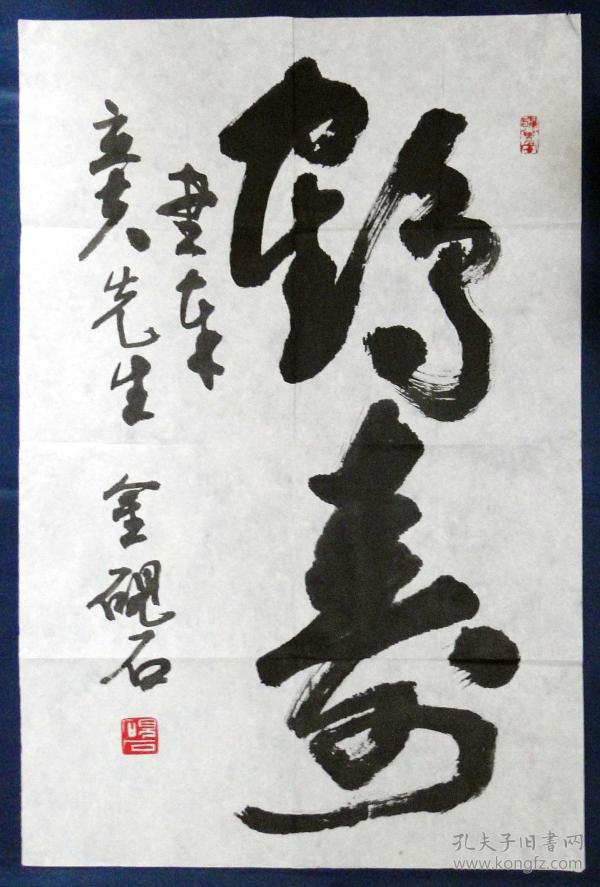 鹤寿
书奉
立夫先生 金砚石
孔夫子旧书网
www.kongfz.com